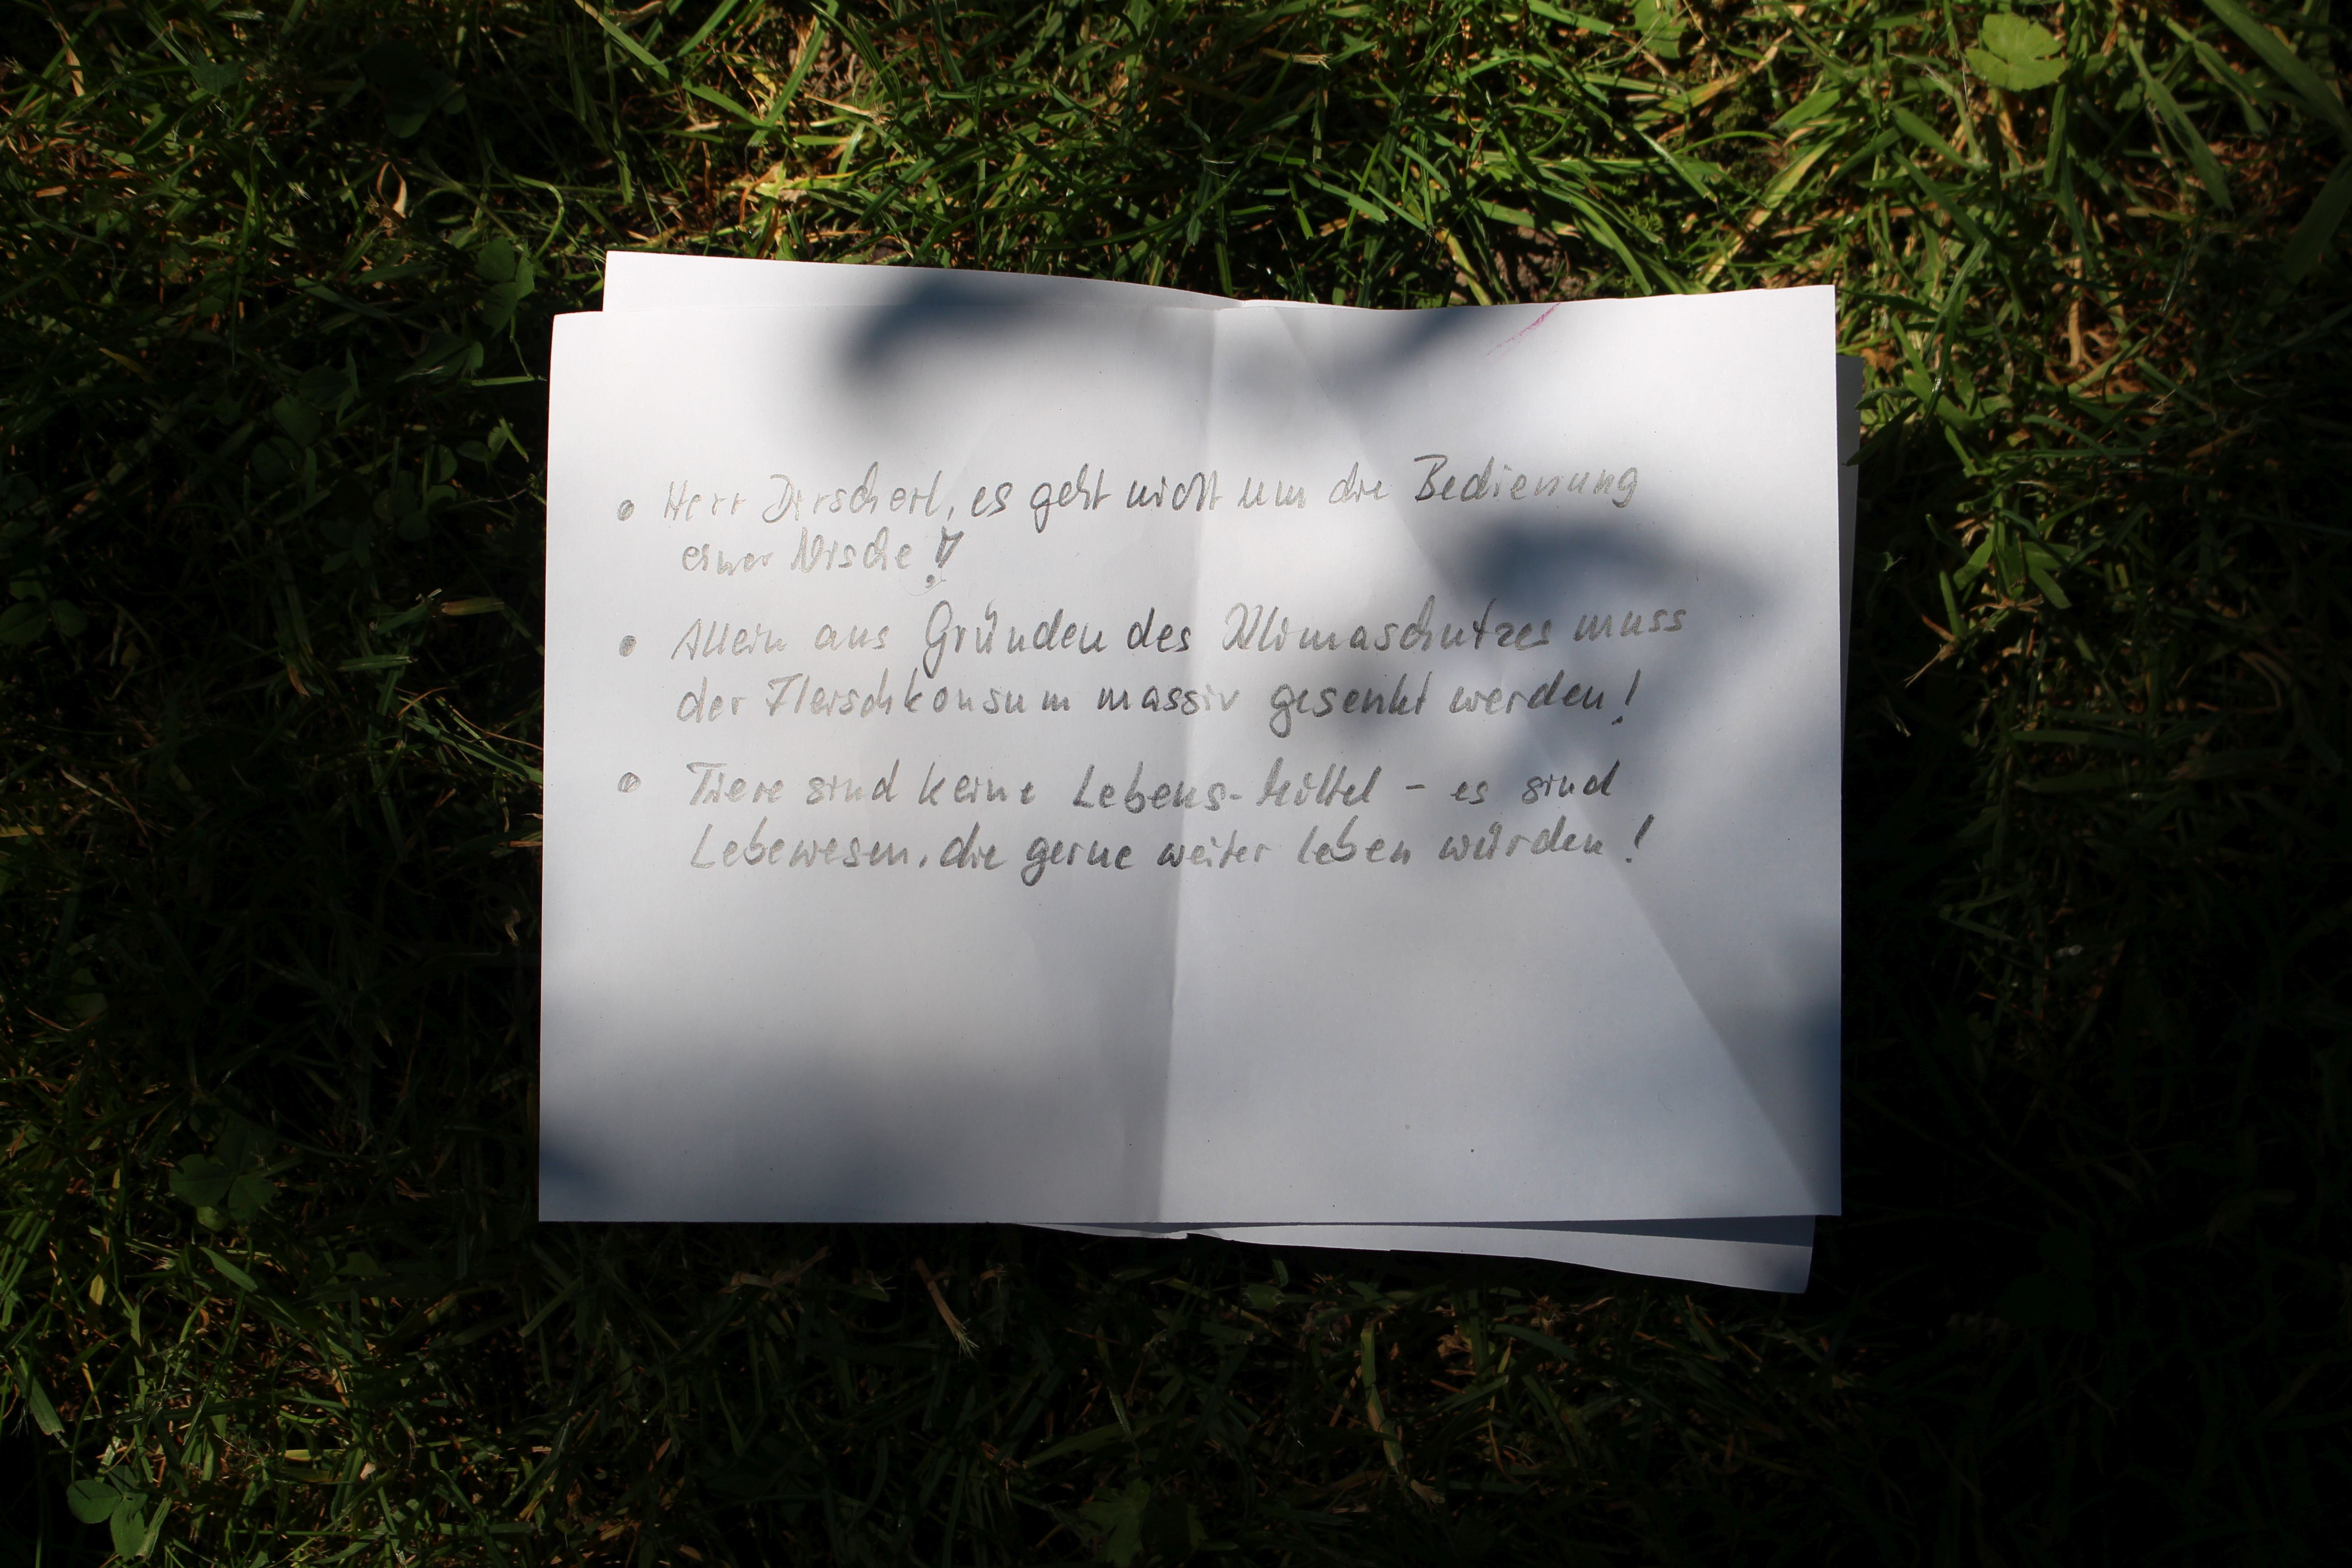 • Herr Dirscherl, es geht nicht um die Bedienung
einer Nische!
• Allein aus Gründen des Klimaschutzes muss
der Fleischkonsum massiv gesenkt werden!
• Tiere sind keine Lebens-Mittel - es sind
Lebewesen, die gerne weiter leben würden!